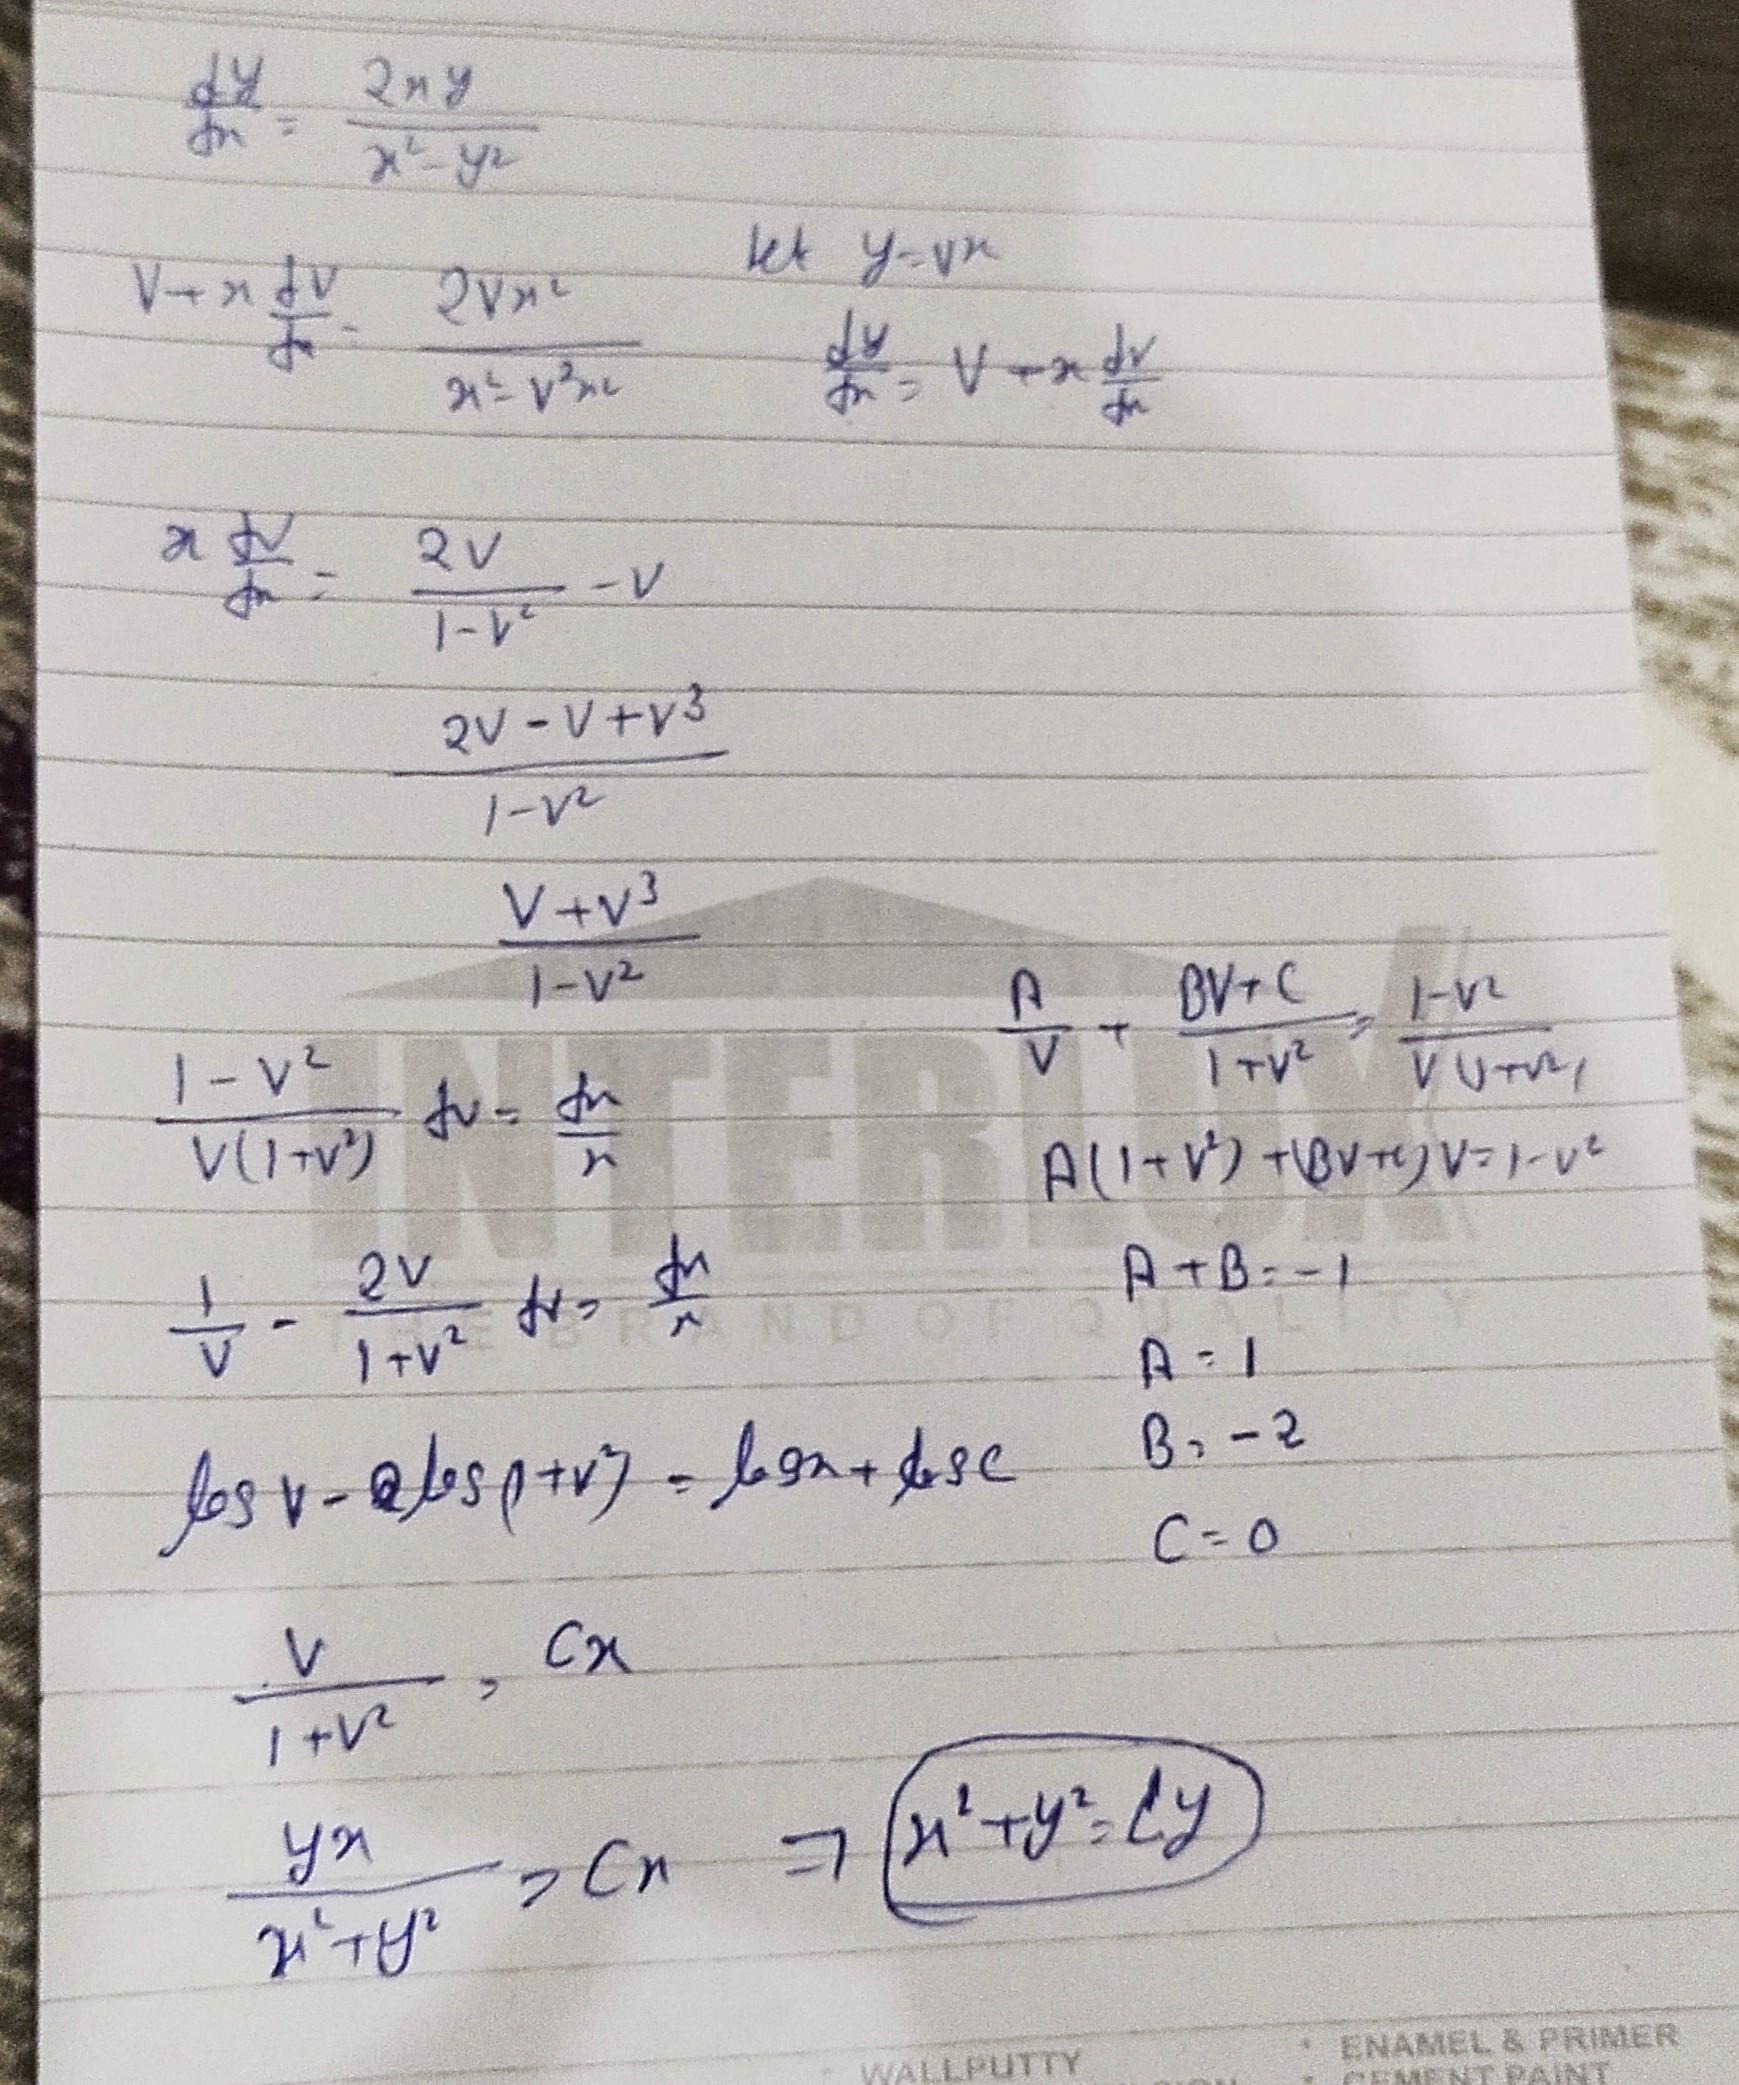 dy/dx = 2xy/x²-y²
let y=vx
V+x dv/dx = 2Vx²/x²-v²x²
dy/dx = V+x dv/dx
x dv/dx = 2V/1-V² -V
2V-V+V³/1-V²
V+V³/1-V²
A/V + BV+C/1+V² = 1-V²/V(1+V²)
1-V²/V(1+V²) dv = dx/x
A(1+V²)+(BV+C)V=1-V²
1/V - 2V/1+V² dv = dx/x
A+B=-1
A=1
B=-2
log V - log(1+V²) = log x + log C
C=0
V/1+V² = Cx
yx/x²+y² = Cx ⇒ x²+y²=Cy
INTERLUX
THE BRAND OF QUALITY
• ENAMEL & PRIMER
• WALLPUTTY
• CEMENT PAINT